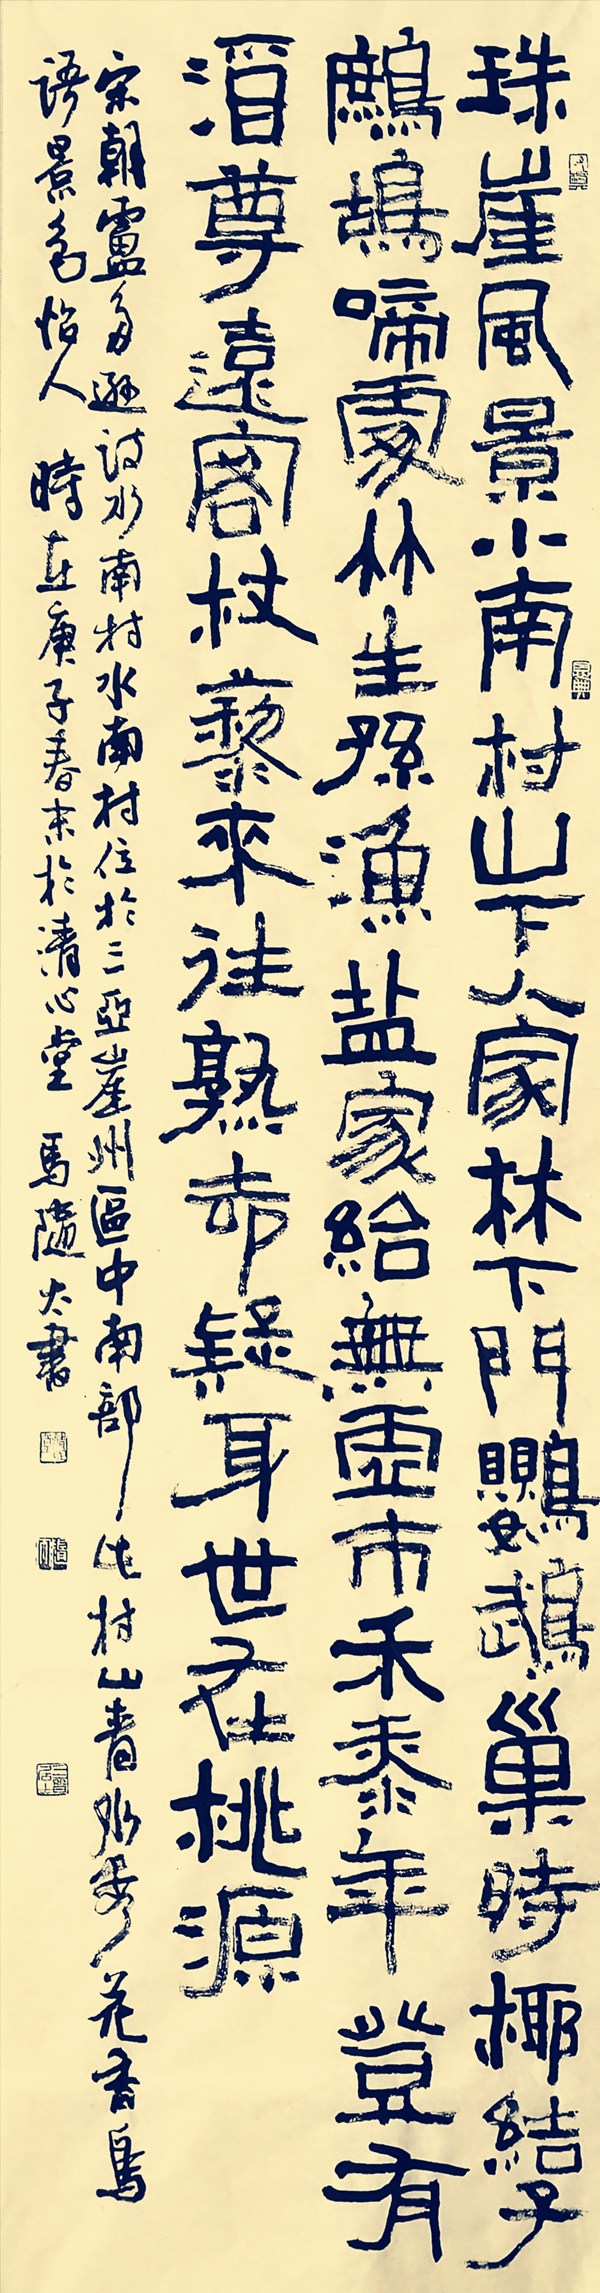 珠崖風景小南村山下人家林下門鸚鵡巢時椰結子
鷓鴣啼處竹生孫漁盐家給無虛市禾黍年登有
酒尊遠客杖藜來往熟却疑身世在桃源
宋朝盧多遜詩水南村水南村位於三亞崖州區中南部此村山青水秀花香鳥
語景色怡人 時在庚子春末於清心堂 馬隨太書